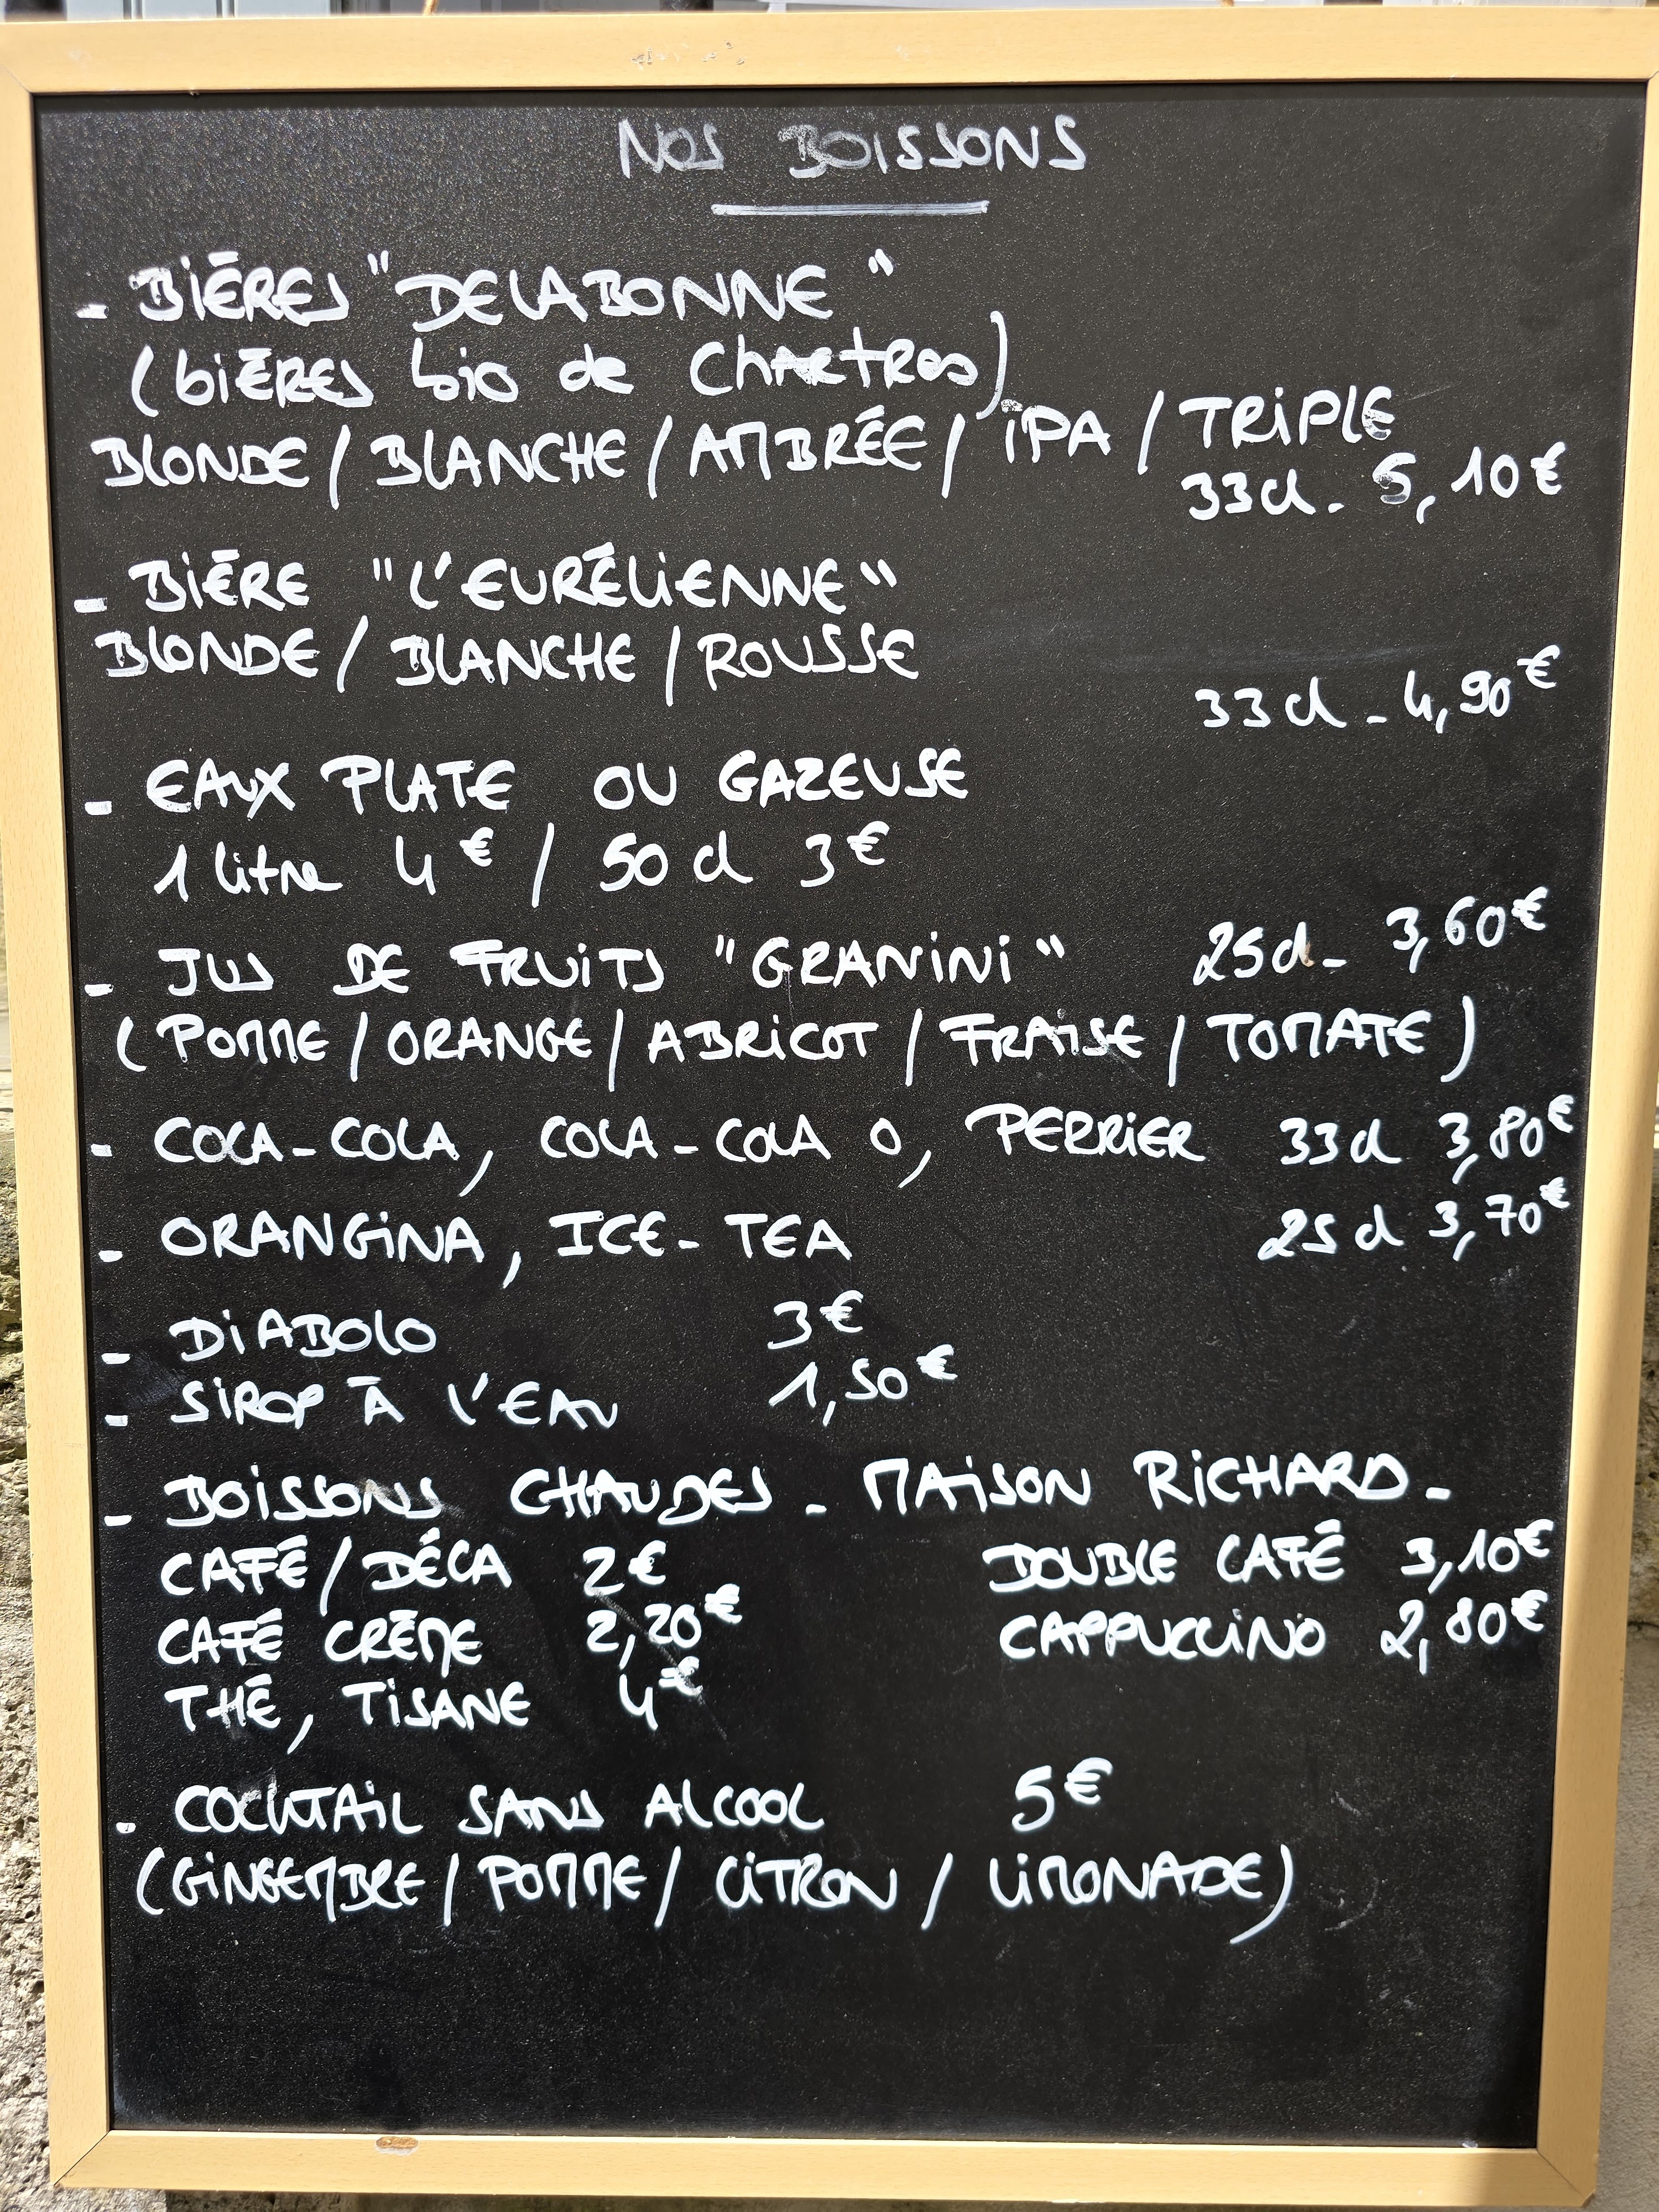 NOS BOISSONS
- BIÈRES "DELABONNE"
(bières bio de Chartres)
BLONDE / BLANCHE / AMBRÉE / IPA / TRIPLE
33cl - 5,10€
- BIÈRE "L'EURÉLIENNE"
BLONDE / BLANCHE / ROUSSE
33cl - 4,90€
- EAUX PLATE OU GAZEUSE
1 litre 4€ / 50 cl 3€
- JUS DE FRUITS "GRANINI" 25cl - 3,60€
(POMME / ORANGE / ABRICOT / FRAISE / TOMATE)
- COCA-COLA, COLA-COLA 0, PERRIER 33cl 3,80€
- ORANGINA, ICE-TEA 25cl 3,70€
- DIABOLO 3€
- SIROP À L'EAU 1,50€
- BOISSONS CHAUDES - MAISON RICHARD -
CAFÉ / DÉCA 2€ DOUBLE CAFÉ 3,10€
CAFÉ CRÈME 2,20€ CAPPUCCINO 2,80€
THÉ, TISANE 4€
- COCKTAIL SANS ALCOOL 5€
(GINGEMBRE / POMME / CITRON / LIMONADE)